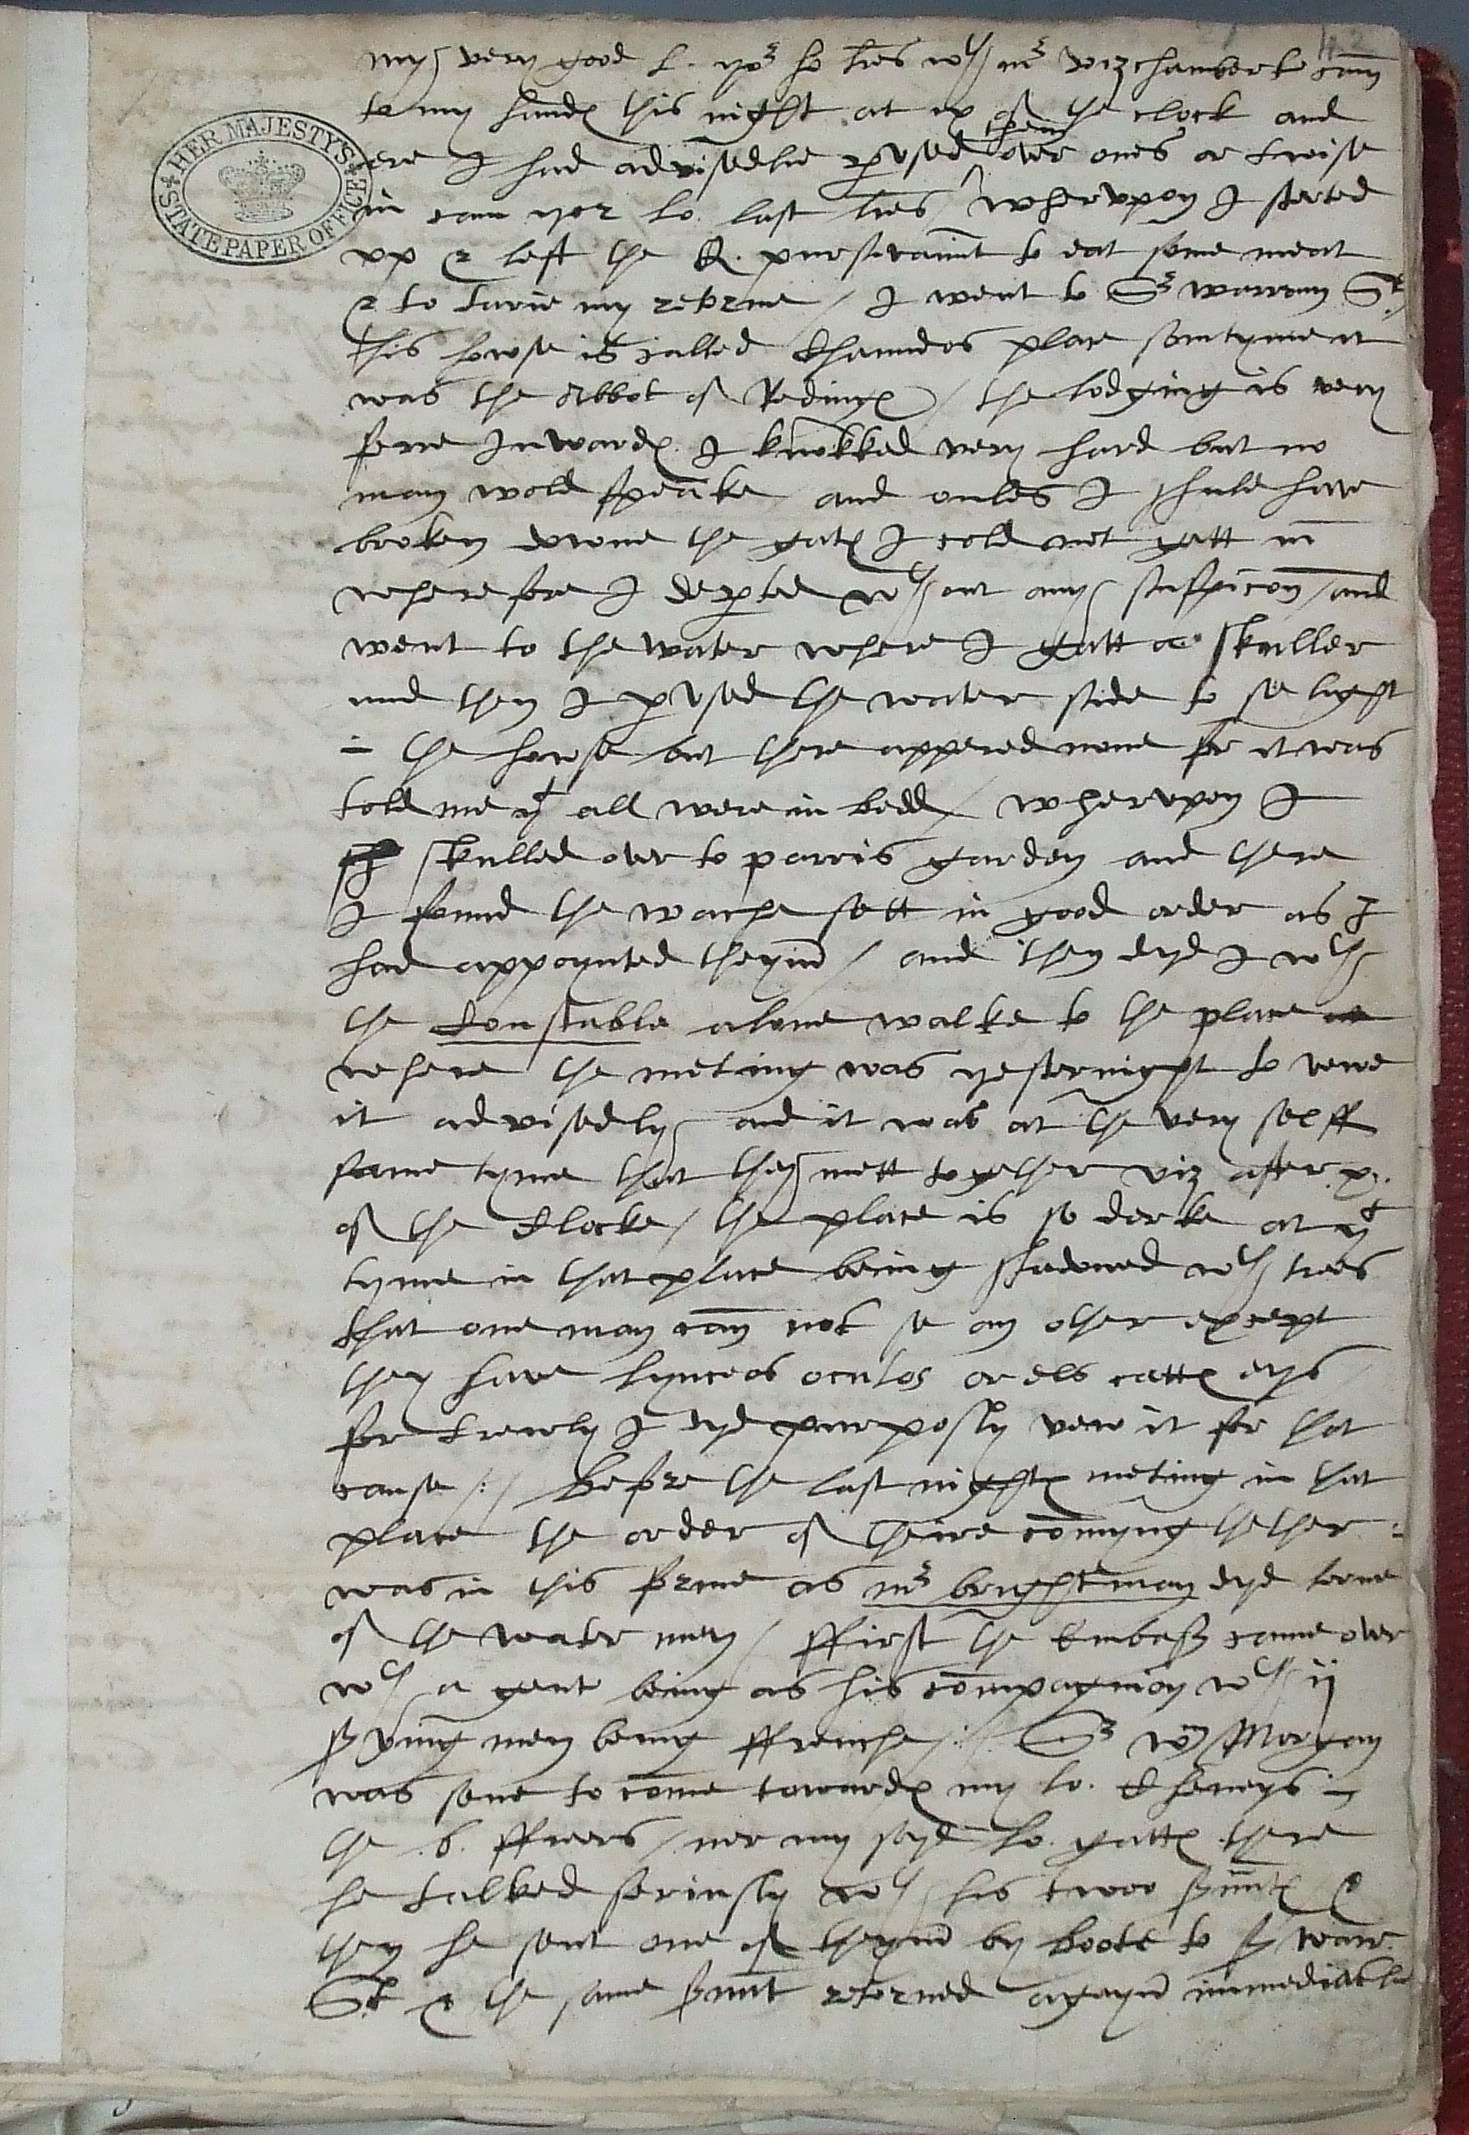 my very good L. yor ho lres wth mr vizchamberle cam
to my handes this night at ix of the clock and
ere I had advisedlie pvsed them over ones or twise
in cam yor lo. last lres / whervpon I sterted
vp & left the Q. pursivaunt to eat some meat
& to tarie my retorne / I went to Sr warram St
this howse is called Chaundos place somtyme it
was the Abbot of Redinges / the lodging is very
ferre Inwardes I knokked very hard but no
man wold speake and onles I shuld have
broken downe the gates I cold not gett in
wherefore I depted wthout any suspicon / and
went to the water where I gatt a skuller
and then I pvsed the water side to se light
in the howse but there appered none for it was
told me yt all were in bedd / whervpon I
skulled over to parris garden and there
I found the wache sett in good order as I
had appoynted theym / and then dyd I wth
the Constable alone walke to the place
where the meting was yesternight to vewe
it advisedly and it was at the very selff
same tyme that they mett together viz after xj.
of the Clocke / the place is so derke at yt
tyme in that place being shadowed wth trees
that one man can not se an other except
they have lynceos oculos or els cattes eys
for trewly I dyd purposly vew it for that
cause /:/ Before the last nightes meting in that
place the order of theire comyng thether
was in this forme as mr brightman dyd lerne
of the water men / ffirst the Embass came over
wth a gent being as his compagnion wth ij
sving men being ffrenche /:/ Sr Wm Morgan
was sene to come towardes my lo. Cheneys in
the b. ffreers / ner my seyd lo. gattes there
he talked seriusly wth his twoo svuntes &
then he sent one of theym by boote to Sr warr.
St & the same svunt retorned agayn immediatlie
HER MAJESTY'S
STATE PAPER OFFICE